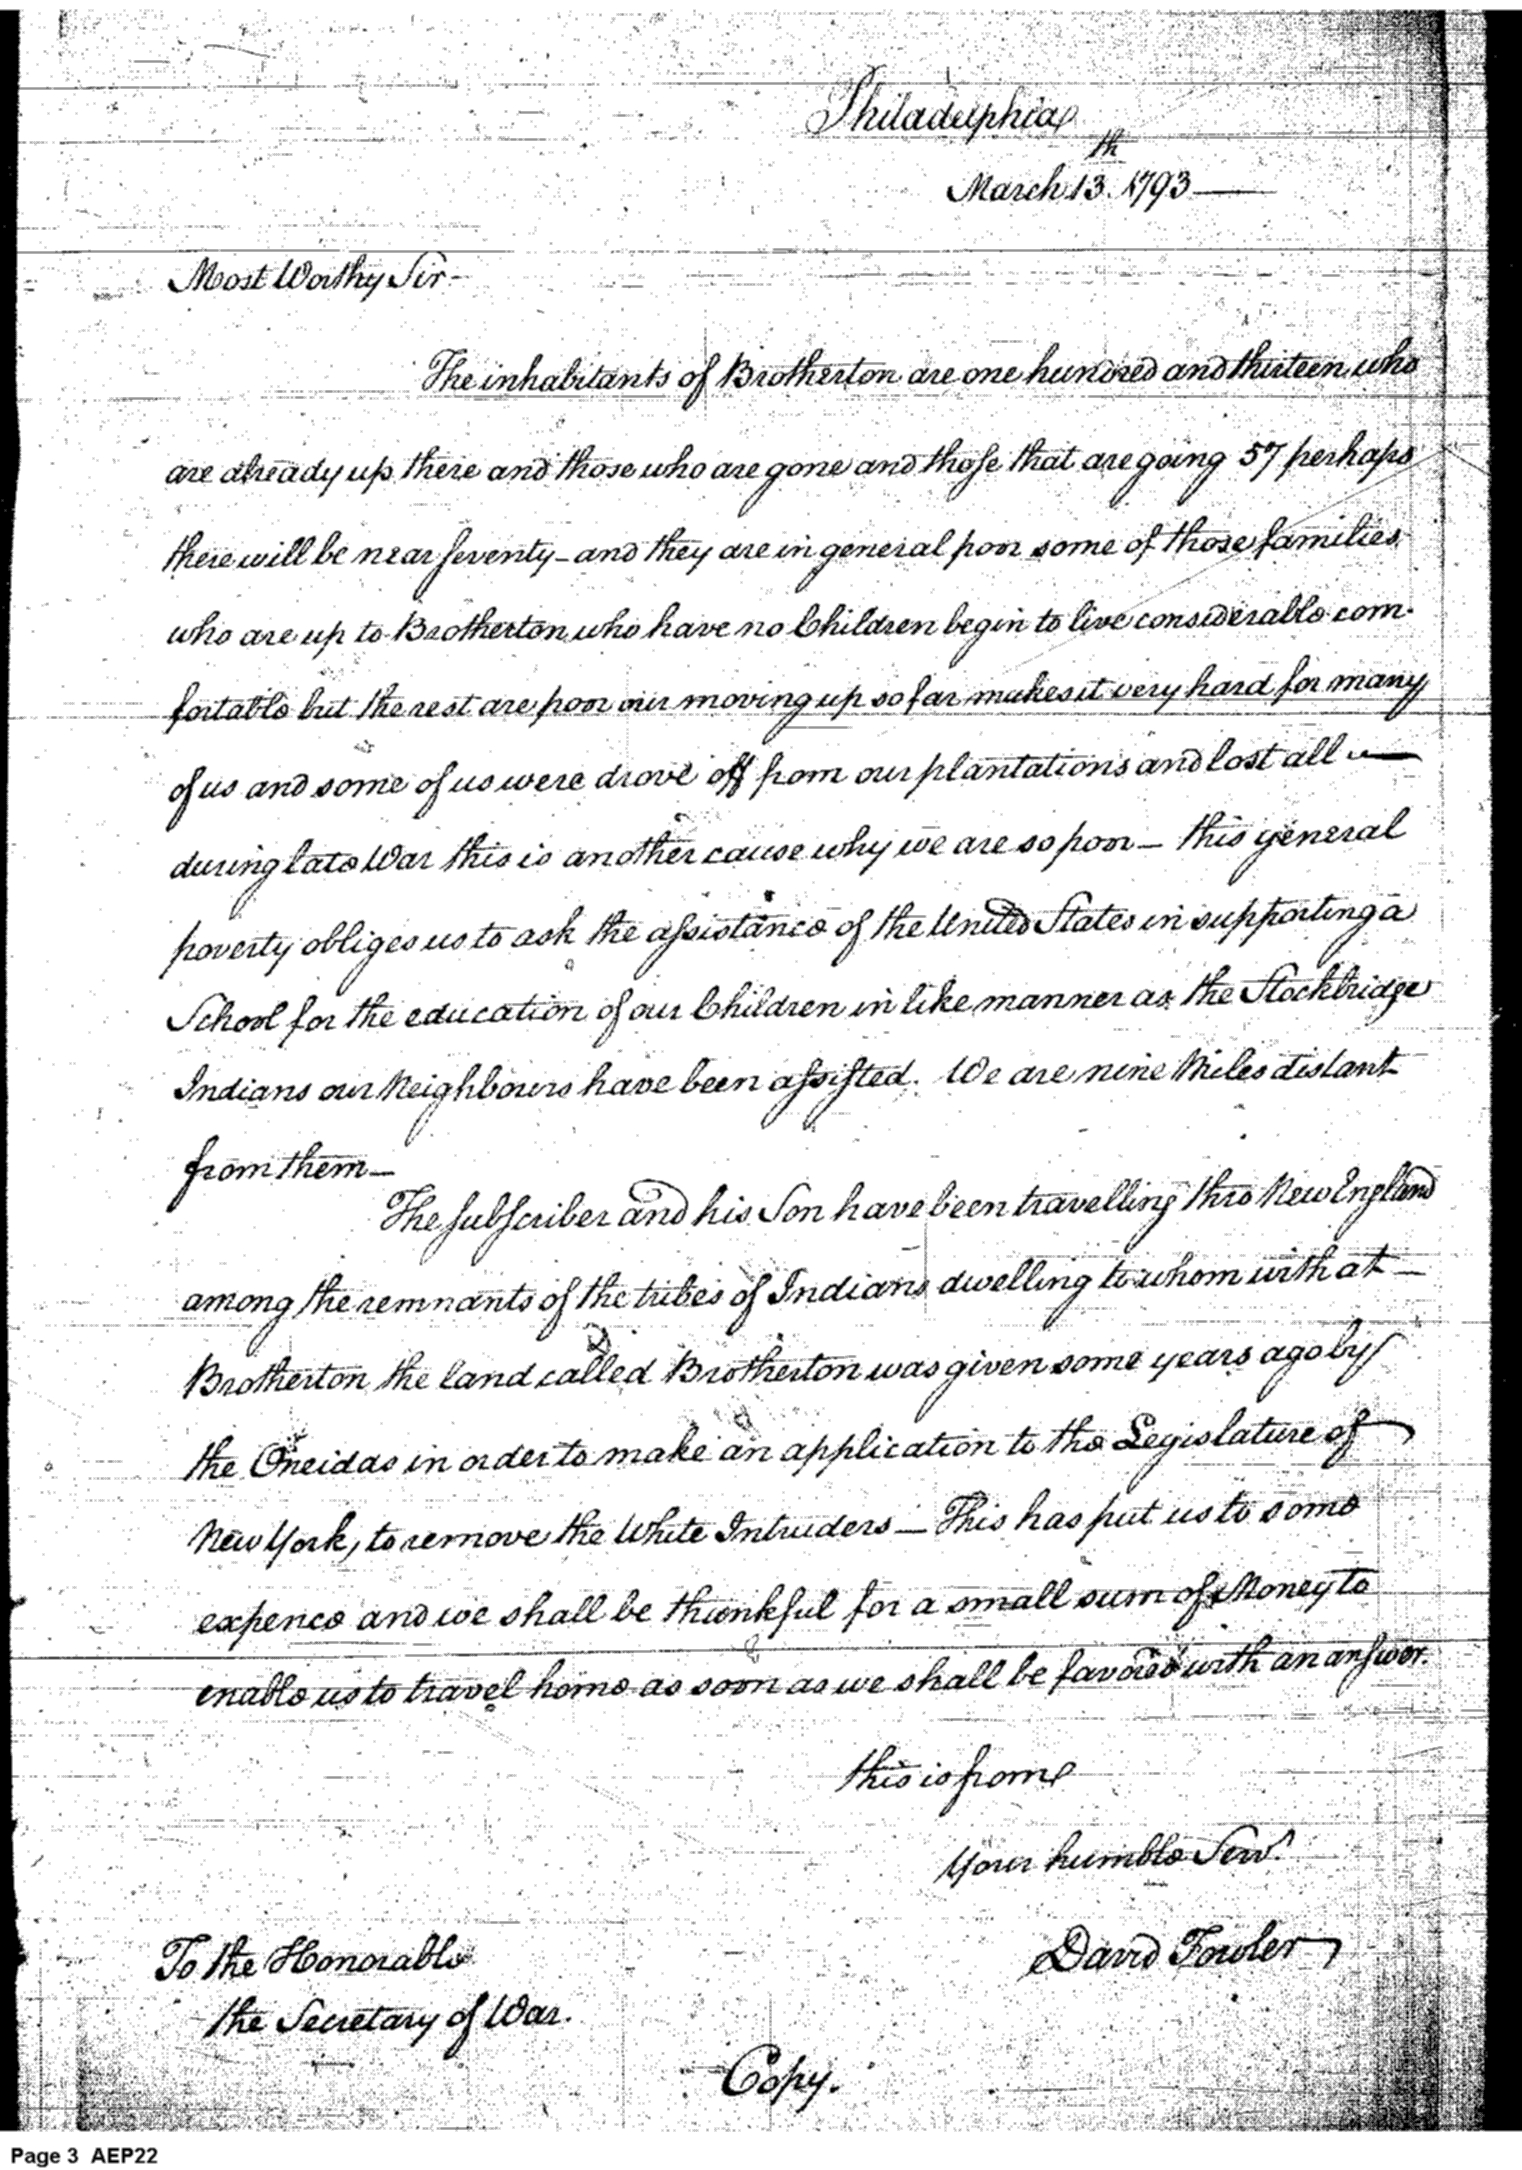 Philadelphia
March 13th 1793
Most Worthy Sir
The inhabitants of Brotherton are one hundred and thirteen who
are already up there and those who are gone and those that are going 57 perhaps
there will be near seventy - and they are in general poor some of those families
who are up to Brotherton who have no Children begin to live considerable com-
fortable but the rest are poor our moving up so far makes it very hard for many
of us and some of us were drove off from our plantations and lost all
during late War this is another cause why we are so poor - this general
poverty obliges us to ask the assistance of the United States in supporting a
School for the education of our Children in like manner as the Stockbridge
Indians our Neighbours have been assisted. We are nine Miles distant
from them -
The subscriber and his Son have been travelling thro New England
among the remnants of the tribes of Indians dwelling to whom with at -
Brotherton the land called Brotherton was given some years ago by
the Oneidas in order to make an application to the Legislature of
New York, to remove the White Intruders - This has put us to some
expence and we shall be thankful for a small sum of Money to
enable us to travel home as soon as we shall be favored with an answer.
this is from
Your humble Servt.
David Fowler
To the Honorable
the Secretary of War.
Copy.
Page 3 AEP22